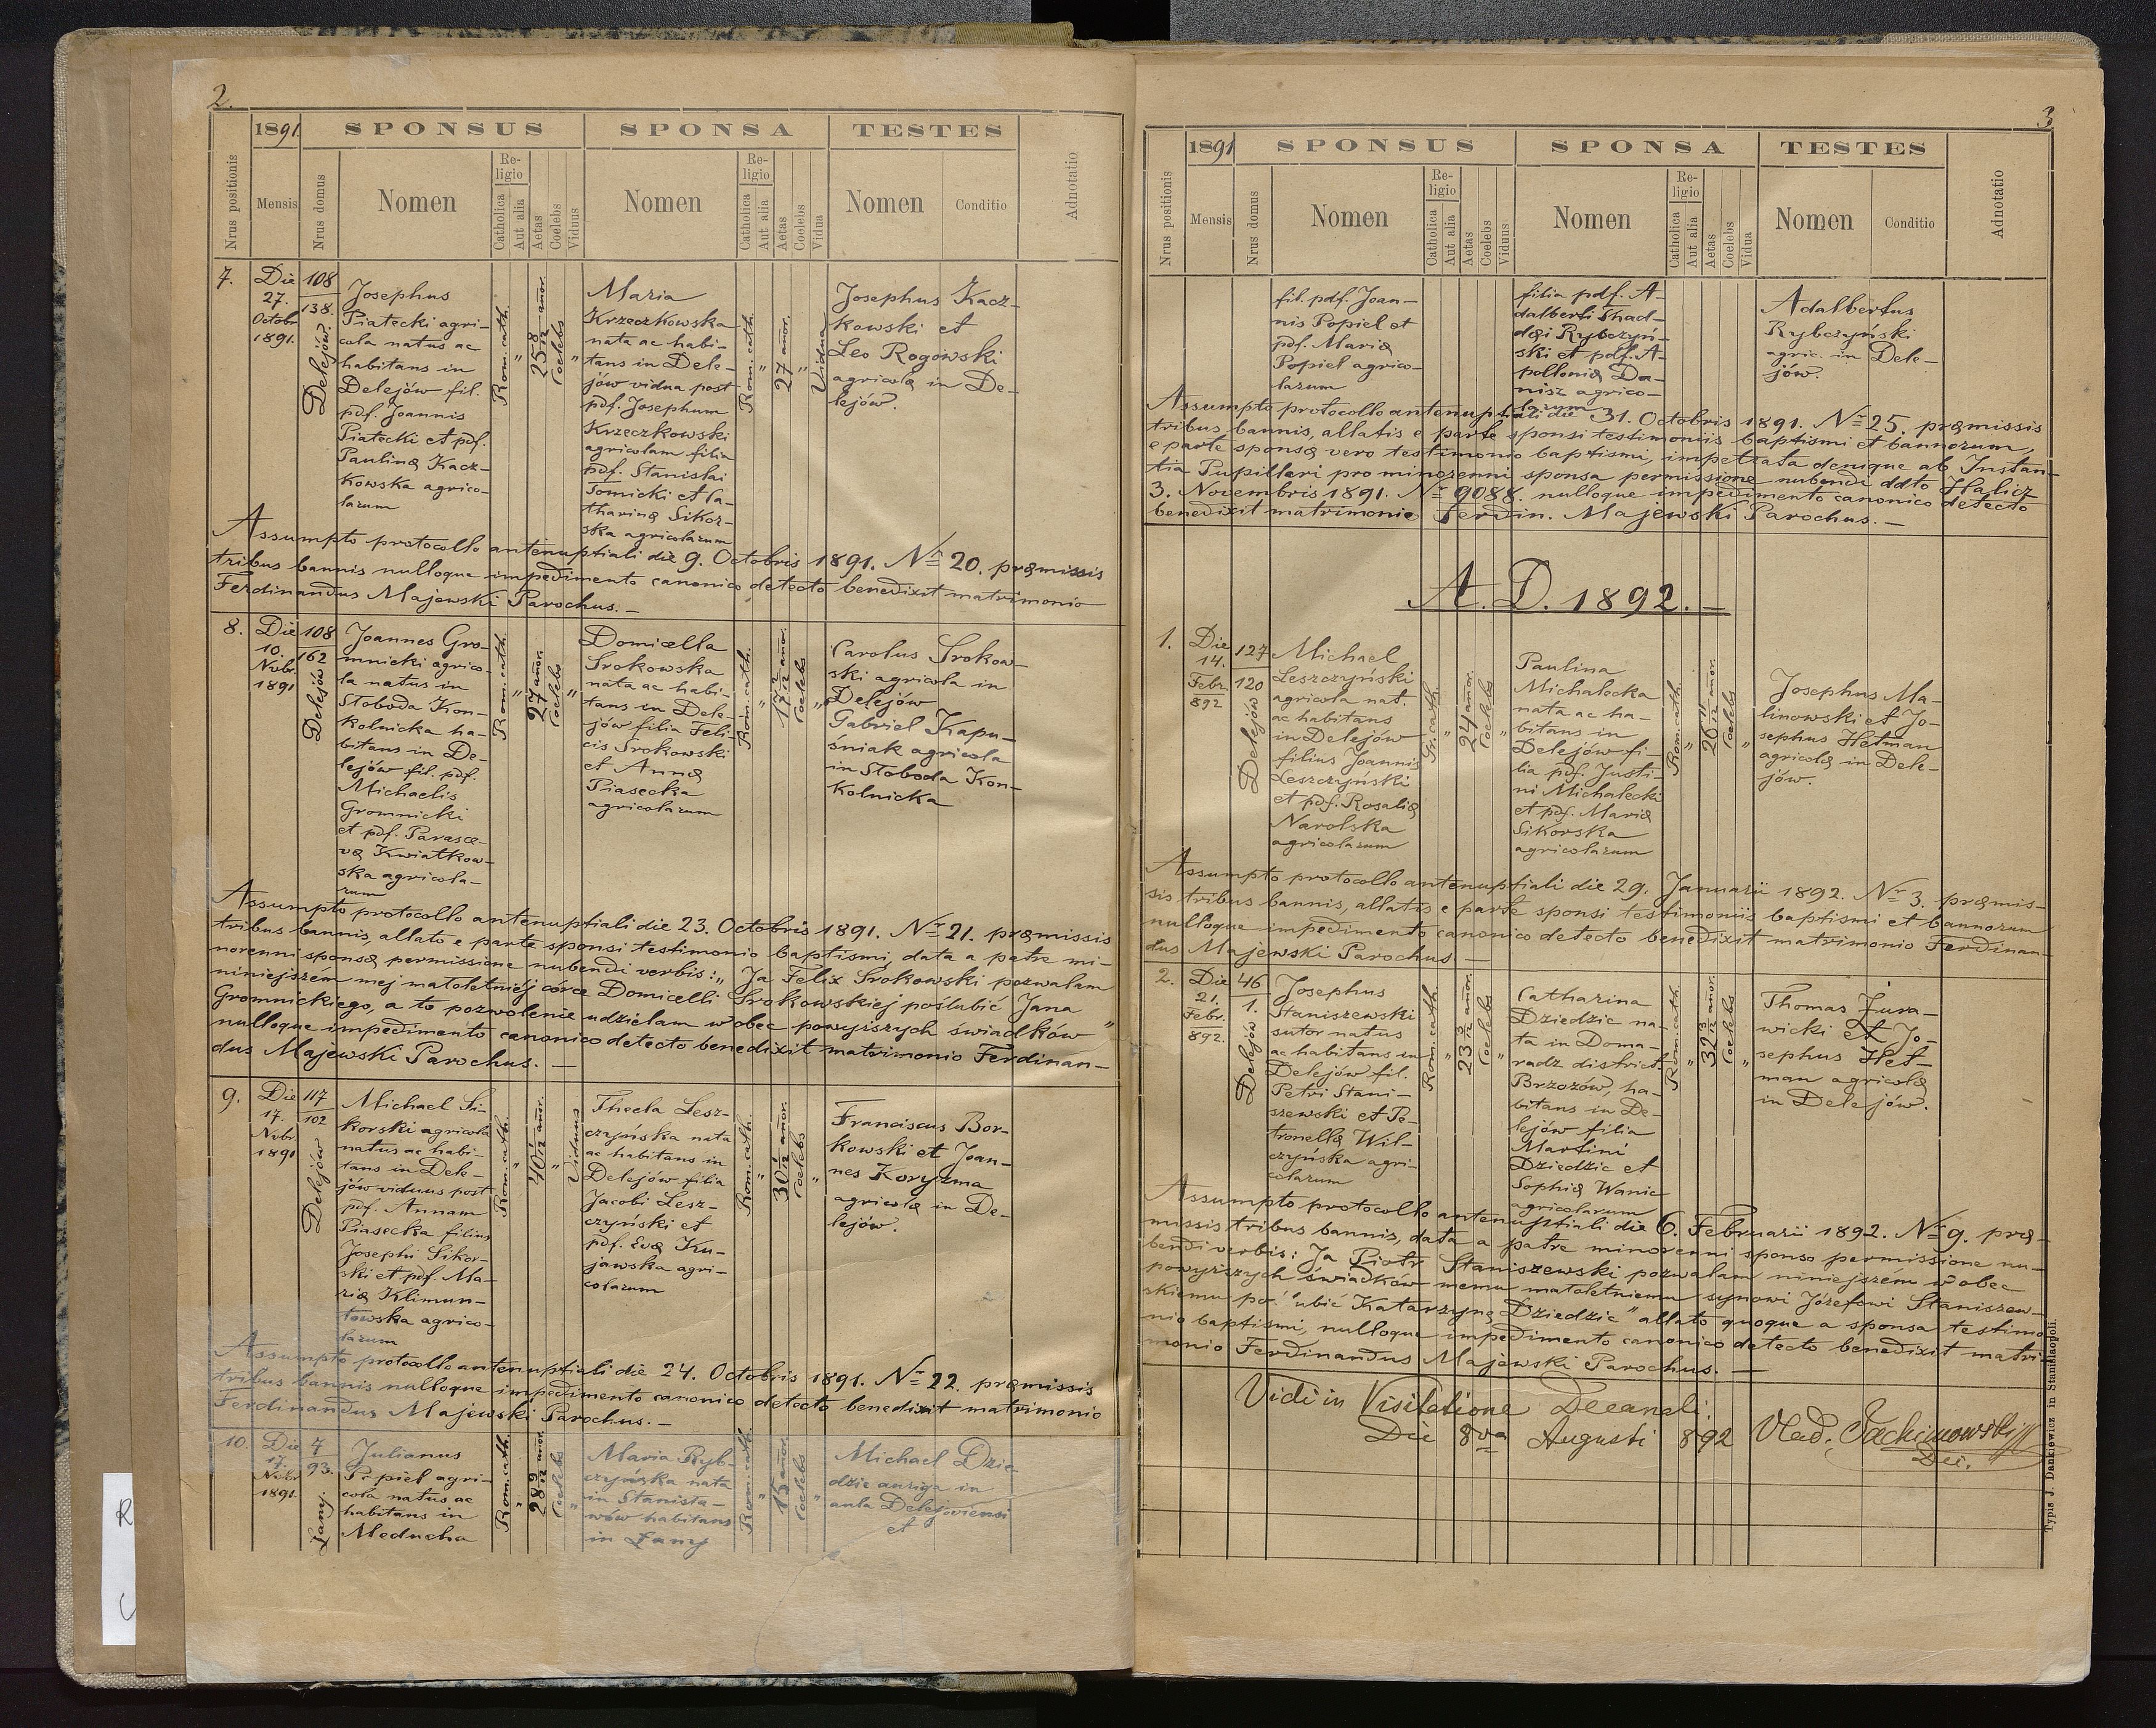 2.
1891. SPONSUS SPONSA TESTES
Nrus positionis
Mensis
Nrus domus
Nomen
Religio
Catholica
Aut alia
Aetas
Coelebs
Viduus
Nomen
Religio
Catholica
Aut alia
Aetas
Coelebs
Vidua
Nomen
Conditio
Adnotatio
7.
Die
27.
Octobr
1891.
108
138.
Delejów
Josephus
Piatecki agri-
cola natus ac
habitans in
Delejów fil.
pdf. Joannis
Piatecki et pdf.
Paulinæ Kacz-
kowska agrico-
larum
Rom. cath.
"
25 8/12 añor.
Coelebs
"
Maria
Krzeczkowska
nata ac habi-
tans in Dele-
jów vidua post
pdf. Josephum
Krzeczkowski
agricolam filia
pdf. Stanislai
Tomicki et Ca-
tharinæ Sikor-
ska agricolarum
Rom. cath.
"
27 añor.
"
Vidua
Josephus Kacz-
kowski et
Leo Rogowski
agricolæ in De-
lejów.
Assumpto protocollo antenuptiali die 9. Octobris 1891. Nr 20. præmissis
tribus bannis nulloque impedimento canonico detecto benedixit matrimonio
Ferdinandus Majewski Parochus. —
8.
Die
10.
Nvbr.
1891
108
162
Delejów
Joannes Gro-
mnicki agrico-
la natus in
Stoboda Kon-
kolnicka ha-
bitans in De-
lejów fil. pdf.
Michaelis
Gromnicki
et pdf. Parasce-
væ Kwiatkow-
ska agricola-
rum
Rom. cath.
"
27 añor.
Coelebs
"
Domicella
Srokowska
nata ac habi-
tans in Dele-
jów filia Feli-
cis Srokowski
et Annæ
Piasecka
agricolarum
Rom. cath.
"
17 2/12 añor.
Coelebs
"
Carolus Srokow-
ski agricola in
Delejów
Gabriel Kapu-
śniak agricola
in Stoboda Kon-
kolnicka
Assumpto protocollo antenuptiali die 23. Octobris 1891. Nr 21. præmissis
tribus bannis, allato e parte sponsi testimonio baptismi, data a patre mi-
norenni sponsæ permissione nubendi verbis: „ Ja Felix Srokowski pozwalam
niniejszém mej małoletniéj córce Domicelli Srokowskiej poślubić Jana
Gromnickiego, a to pozwolenie udzielam wobec powyższych świadków "
nulloque impedimento canonico detecto benedixit matrimonio Ferdinan-
dus Majewski Parochus. —
9.
Die
17.
Nvbr.
1891
117
102
Delejów
Michael Si-
korski agricola
natus ac habi-
tans in Dele-
jów viduus post
pdf. Annam
Piasecka filius
Josephi Sikor-
ski et pdf. Ma-
riæ Klimun-
towska agrico-
larum
Rom. cath.
"
40 1/12 añor.
"
Viduus
Thecla Lesz-
czyńska nata
ac habitans in
Delejów filia
Jacobi Lesz-
czyński et
pdf. Evæ Ku-
jawska agri-
colarum
Rom. cath.
"
30 1/12 añor.
Coelebs
"
Franciscus Bor-
kowski et Joan-
nes Koryzma
agricolæ in De-
lejów.
Assumpto protocollo antenuptiali die 24. Octobris 1891. Nr 22. præmissis
tribus bannis nulloque impedimento canonico detecto benedixit matrimonio
Ferdinandus Majewski Parochus. —
10.
Die
17.
Nvbr
1891.
7
93.
Łany.
Julianus
Popiel agri-
cola natus ac
habitans in
Meducha
Rom. cath.
"
28 9/12 añor.
Coelebs
"
Maria Ryb-
czyńska nata
in Stanisła-
wów habitans
in Łany
Rom. cath.
"
15 añor.
Coelebs
"
Michael Dzie-
dzic auriga in
aula Delejoviensi
et
3
1891 SPONSUS SPONSA TESTES
Nrus positionis
Mensis
Nrus domus
Nomen
Religio
Catholica
Aut alia
Aetas
Coelebs
Viduus
Nomen
Religio
Catholica
Aut alia
Aetas
Coelebs
Vidua
Nomen
Conditio
Adnotatio
fil. pdf. Joan-
nis Popiel et
pdf. Mariæ
Popiel agrico-
larum
filia pdf. A-
dalberti Thad-
dæi Rybczyń-
ski et pdf. A-
polloniæ Da-
nisz agrico-
larum
Adalbertus
Rybczyński
agric. in Dele-
jów.
Assumpto protocollo antenuptiali die 31. Octobris 1891. Nr 25. præmissis
tribus bannis, allatis e parte sponsi testimoniis baptismi et bannorum,
e parte sponsæ vero testimonio baptismi, impetrata denique ab Instan-
tia Pupillari pro minorenni sponsa permissione nubendi ddto Halicz
3. Novembris 1891. Nr 9088. nulloque impedimento canonico detecto
benedixit matrimonio Ferdin. Majewski Parochus. —
A. D. 1892. —
1.
Die
14.
Febr.
892
127
120
Delejów
Michael
Leszczyński
agricola nat.
ac habitans
in Delejów
filius Joannis
Leszczyński
et pdf. Rosaliæ
Narolska
agricolarum
Gr. cath.
"
24 añor.
Coelebs
"
Paulina
Michałecka
nata ac ha-
bitans in
Delejów fi-
lia pdf. Justi-
ni Michałecki
et pdf. Mariæ
Sikórska
agricolarum
Rom. cath.
"
26 11/12 añor.
Coelebs
"
Josephus Ma-
linowski et Jo-
sephus Hetman
agricolæ in Dele-
jów.
Assumpto protocollo antenuptiali die 29. Januarii 1892. Nr 3. præmis-
sis tribus bannis, allatis e parte sponsi testimoniis baptismi et bannorum
nulloque impedimento canonico detecto benedixit matrimonio Ferdinan-
dus Majewski Parochus. —
2.
Die
21.
Febr.
892.
46
1.
Delejów
Josephus
Staniszewski
sutor natus
ac habitans in
Delejów fil.
Petri Stani-
szewski et Pe-
tronellæ Wil-
czyńska agri-
colarum
Rom. cath.
"
23 3/12 añor.
Coelebs
"
Catharina
Dziedzic na-
ta in Doma-
radz district.
Brzozów, ha-
bitans in De-
lejów filia
Martini
Dziedzic et
Sophiæ Wanic
agricolarum
Rom. cath.
"
32 3/12 añor.
Coelebs
"
Thomas Żura-
wicki et Jo-
sephus Het-
man agricolæ
in Delejów.
Assumpto protocollo antenuptiali die 6. Februarii 1892. Nr 9. præ-
missis tribus bannis, data a patre minorenni sponso permissione nu-
bendi verbis: Ja Piotr Staniszewski pozwalam niniejszém wobec
powyższych świadków memu małoletniemu synowi Józefowi Staniszew-
skiemu poślubić Katarzynę Dziedzic " allato quoque a sponsa testimo-
nio baptismi, nulloque impedimento canonico detecto benedixit matri-
monio Ferdinandus Majewski Parochus. —
Vidi in Visitatione Decanali.
Die 8va Augusti 892 Vlad. Jachimowski
Dec.
Typis J. Dankiewicz in Stanislaopoli.